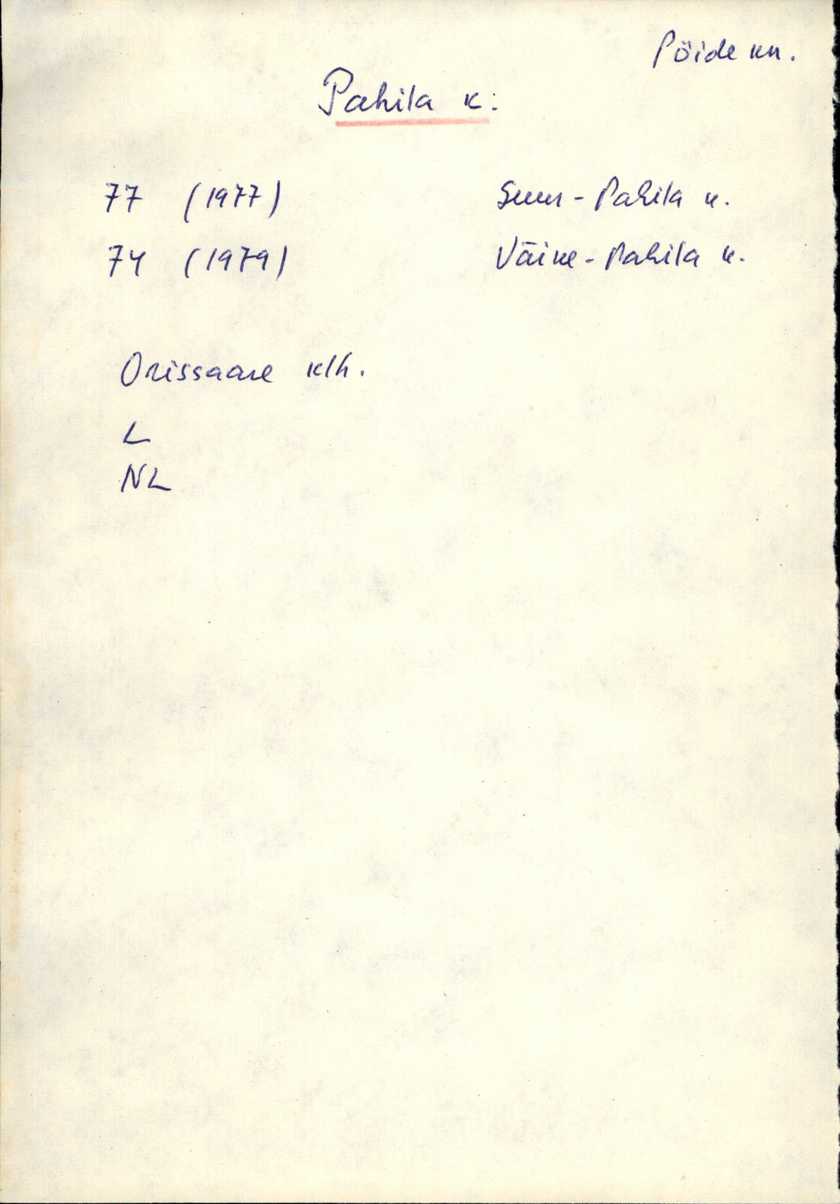 Pöide kn.
Pahila k:
77 (1977) Suur-Pahila k.
74 (1979) Väike-Pahila k.
Orissaare klh.
L
NL